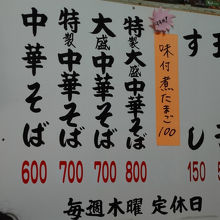 す
し
150
味付煮たまご100
特製大盛中華そば
800
大盛中華そば
700
特製中華そば
700
中華そば
600
毎週木曜 定休日